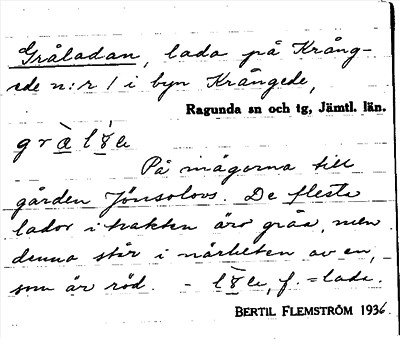 Gråladan, lada på Krång-
ede n:r 1 i byn Krångede,
Ragunda sn och tg, Jämtl. län.
På mägorna till
gården Jönsolovs. De flesta
lador i trakten äro gråa, men
denna står i närheten av en,
som är röd. - f. = lada.
BERTIL FLEMSTRÖM 1936.